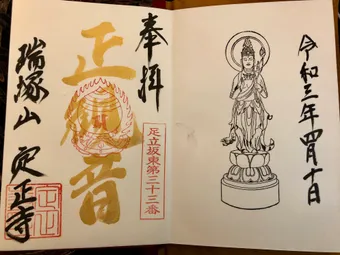 奉拝
正観音
足立坂東第三十三番
瑞塚山 定正寺
令和三年四月十日